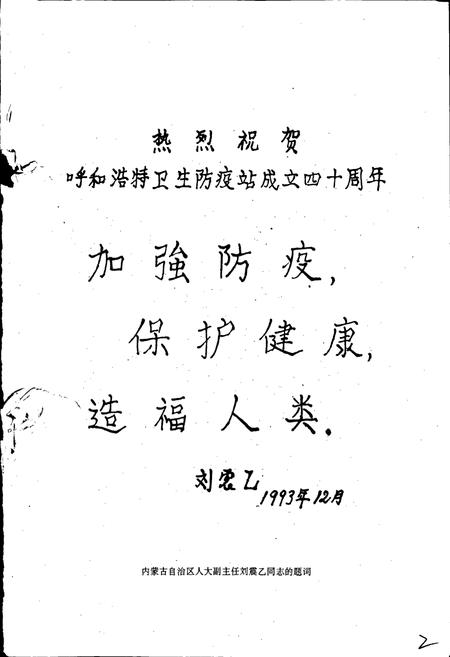 热烈祝贺
呼和浩特卫生防疫站成立四十周年
加強防疫,
保护健康,
造福人类.
刘震乙
1993年12月
内蒙古自治区人大副主任刘震乙同志的题词
2